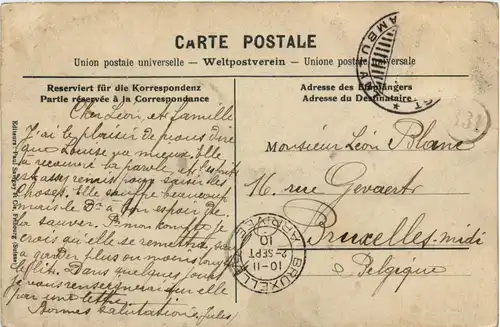 CARTE POSTALE
Union postale universelle – Weltpostverein – Unione postale universale
Reserviert für die Korrespondenz
Partie réservée à la Correspondance
Adresse des Empfängers
Adresse du Destinataire
Cher Léon, et famille
J'ai le plaisir de vous dire
que Louise va mieux. Elle
a recouvré la parole, et l'esprit
est assez remis pour saisir les
choses. Elle souffre beaucoup
mais le Dr a bon espoir de
la sauver. A mon compte je
crois qu'elle se remettra, sera
à garder plus ou moins longtemps
le lit. Dans quelques jours
je vous renseignerai sur elle
par une lettre.
Bonnes salutations, Jules
Monsieur Léon Blanc
16, rue Gevaert
Bruxelles-midi
Belgique
AMBULANT
BRUXELLES
ARRIVÉE
10-11
2-SEPT
10
331